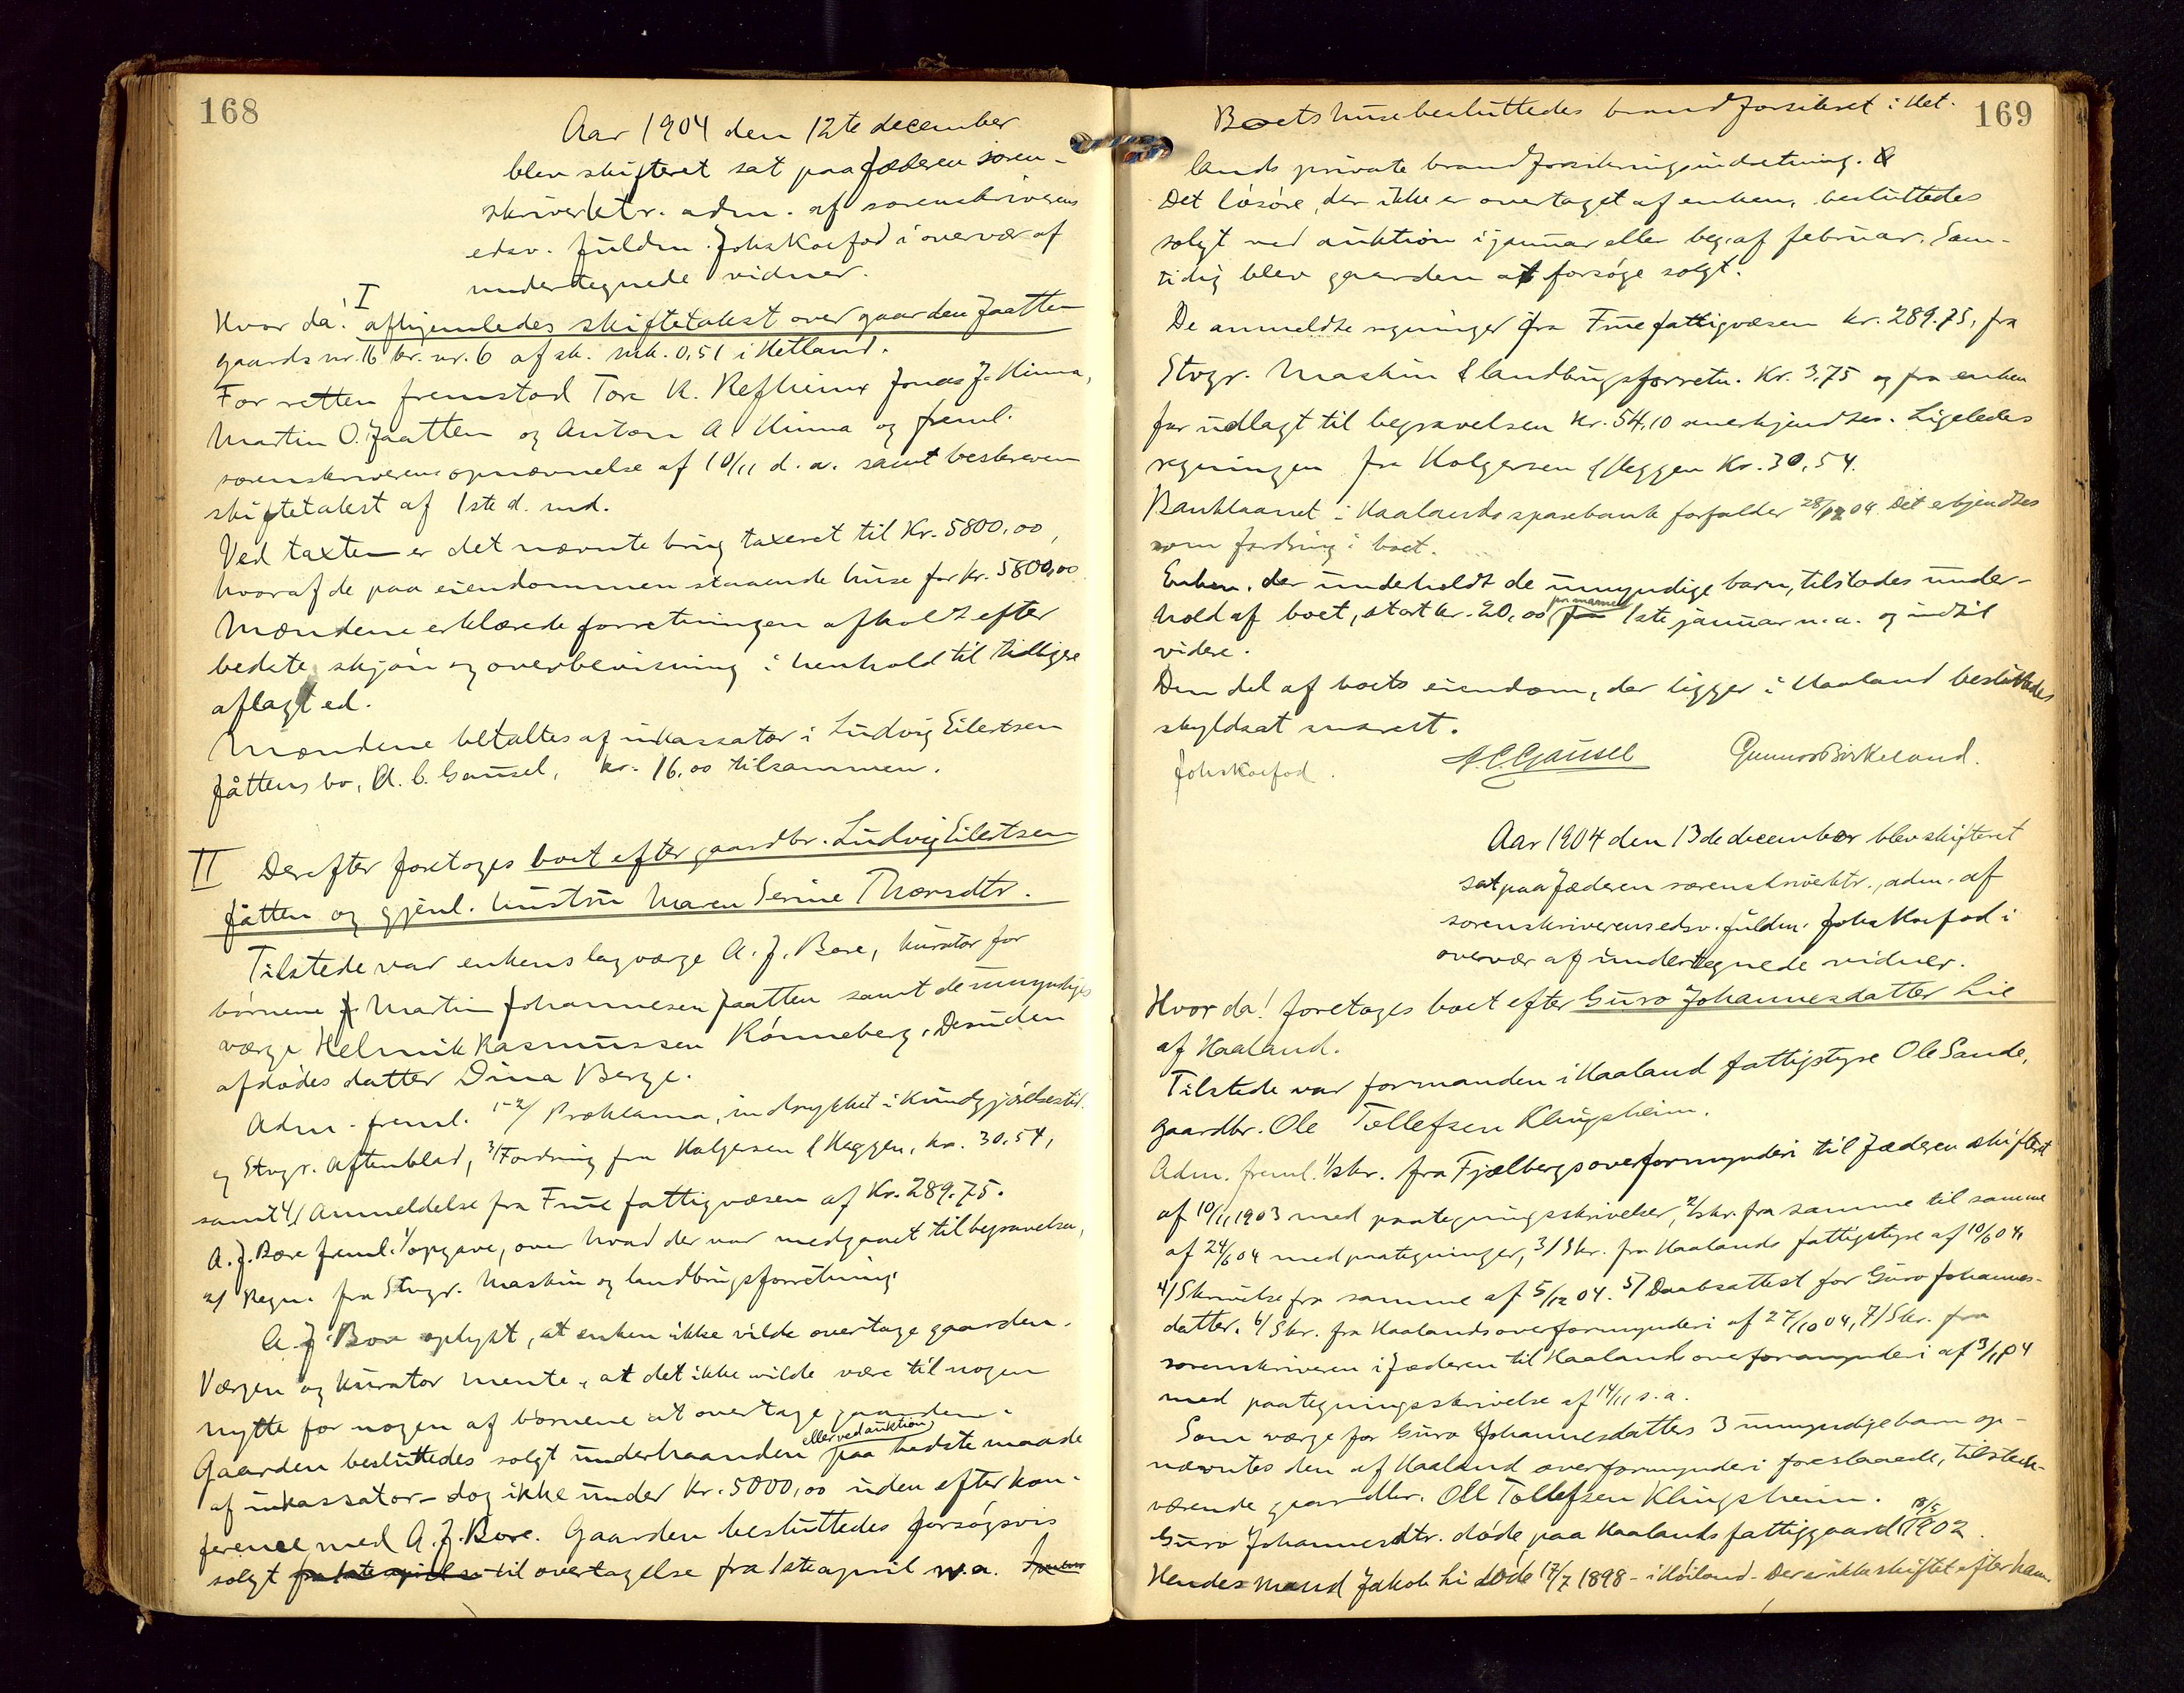 168
Aar 1904 den 12te december
blev skifteret sat paa Jæderen soren-
skriverktr. adm. af sorenskriverens
edsv. fuldm. Johs Koefod i overvær af
undertegnede vidner.
I
Hvor da! afhjemledes skiftetakst over gaarden Jaatten
gaards nr. 16 br. nr. 6 af sk. mk. 0,51 i Hetland.
For retten fremstod Tore K. Refheim Jonas J. Hinna,
Martin O. Jaatten og Anton A. Hinna og freml.
sorenskriverens opnævnelse af 10/11 d. a. samt beskreven
skiftetakst af 1ste d. md.
Ved taxten er det nævnte brug taxeret til Kr. 5800,00,
hvoraf de paa eiendommen staaende huse for kr. 5800,00
Mændene erklærede forretningen afholdt efter
bedste skjøn og overbevisning i henhold til tidligere
aflagt ed.
Mændene betaltes af inkassator i Ludvig Eilertsen
Jåttens bo, A. C. Gausel, kr. 16,00 tilsammen.
II Derefter foretoges boet efter gaardbr. Ludvig Eilertsen
Jåtten og gjenl. hustru Maren Serine Thorsdtr.
Tilstede var enkens lagværge A. J. Bore, kurator for
børnene Martin Johannesen Jaatten samt de umyndiges
værge Helmik Rasmussen Rönneberg. Desuden
afdødes datter Dina Berge.
Adm. freml. 1-2/ Proklama, indrykket i Kundgjørelsestid.
og Stvgr. Aftenblad, 3/ Fordring fra Holgersen & Heggen, kr. 30.54,
samt 4/ Anmeldelse fra Frue fattigvæsen af Kr. 289.75.
A. J. Bore freml. 1/ opgave, over hvad der var medgaaet til begravelsen,
2/ Regn. fra Stvgr. Maskin og landbrugsforretning.
A. J. Bore oplyst, at enken ikke vilde overtage gaarden.
Værgen og kurator mente, at det ikke vilde være til nogen
nytte for nogen af børnene at overtage gaarden.
eller ved auktion
Gaarden besluttedes solgt underhaanden paa bedste maade
af inkassator - dog ikke under Kr. 5000,00 uden efter kon-
ference med A. J. Bore. Gaarden besluttedes forsøgsvis
solgt fra 1ste april til overtagelse fra 1ste april n. a.
169
Boets huse besluttedes brandforsikret i Het-
lands private brandforsikringsindretning.
Det løsøre, der ikke er overtaget af enken, besluttedes
solgt ved auktion i januar eller beg. af februar. Sam-
tidig blev gaarden at forsøge solgt.
De anmeldte regninger fra Frue fattigvæsen kr. 289.75, fra
Stvgr. Maskin & landbrugsforretn. Kr. 3,75 og fra enken
for udlagt til begravelsen Kr. 54,10 anerkjendtes. Ligeledes
regningen fra Holgersen & Heggen Kr. 30,54.
Banklaanet i Haalands sparebank forfalder 28/12 04. Det erkjendtes
som fordring i boet.
Enken, der underholdt de umyndige barn, tilstodes under-
pr. maaned
hold af boet, stort kr. 20,00 fra 1ste januar n. a. og indtil
videre.
Den del af boets eiendom, der ligger i Haaland besluttedes
skyldsat snarest.
Johs Koefod. A. C. Gausel Gunnar Birkeland.
Aar 1904 den 13de december blev skifteret
sat paa Jæderen sorenskriverktr., adm. af
sorenskriverens edsv. fuldm. Johs Koefod i
overvær af undertegnede vidner.
Hvor da! foretoges boet efter Guro Johannesdatter Lie
af Haaland.
Tilstede var formanden i Haaland fattigstyre Ole Sande,
gaardbr. Ole Tollefsen Klingsheim.
Adm. freml. 1/ skr. fra Fjælbergs overformynderi til Jæderen skifteret
af 10/11 1903 med paategningsskrivelser, 2/ skr. fra samme til samme
af 24/6 04 med paategninger, 3/ Skr. fra Haalands fattigstyre af 10/6 04,
4/ Skrivelse fra samme af 5/12 04. 5/ Daabsattest for Guro Johannes-
datter. 6/ Skr. fra Haalands overformynderi af 27/10 04, 7/ Skr. fra
sorenskriveren i Jæderen til Haalands overformynderi af 3/11 04
med paategningsskrivelse af 14/11 s. a.
Som værge for Guro Johannesdatters 3 umyndige barn op-
nævntes den af Haaland overformynderi foreslaaede, tilstede-
værende gaardbr. Ole Tollefsen Klingsheim.
Guro Johannesdtr. døde paa Haalands fattiggaard 18/5 1902.
Hendes mand Jakob Li døde 17/7 1898 - i Høiland - Der er ikke skiftet efter ham.